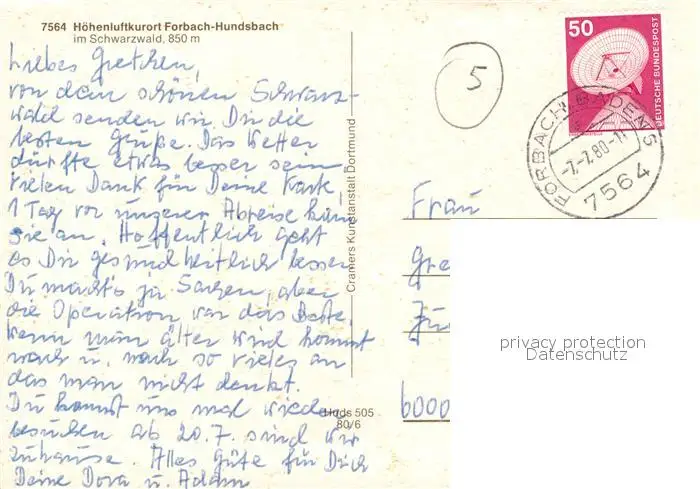 7564 Höhenluftkurort Forbach-Hundsbach
im Schwarzwald, 850 m
Liebes Gretchen,
von dem schönen Schwarz-
wald senden wir Dir die
besten Grüße. Das Wetter
dürfte etwas besser sein
Vielen Dank für Deine Karte
1 Tag vor unserer Abreise kam
sie an. Hoffentlich geht
es Dir gesundheitlich besser
Du machst ja Sachen, aber
die Operation war das Beste.
Wenn man älter wird kommt
nach u. nach so vieles an
das man nicht denkt.
Du kannst uns mal wieder
besuchen ab 20.7. sind wir
zuhause. Alles Gute für Dich
Deine Dora u. Adam
Cramers Kunstanstalt Dortmund
Huds 505
80/6
5
50
DEUTSCHE BUNDESPOST
FORBACH, BADEN 5
-7.-7.80-11
7564
Frau
Gre
6000
privacy protection
Datenschutz